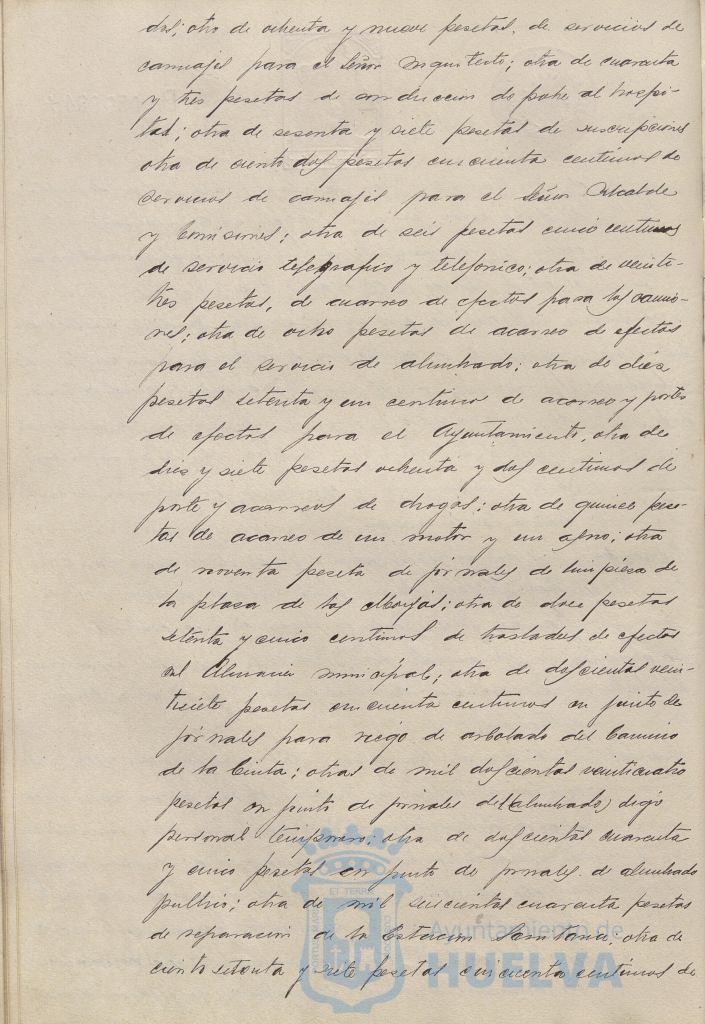 dos; otro de ochenta y nueve pesetas, de servicios de
carruajes para el Señor Arquitecto; otra de cuarenta
y tres pesetas de conduccion de pobre al hospi-
tal; otra de sesenta y siete pesetas de suscripciones
otra de ciento dos pesetas cincuenta centimos de
servicios de carruajes para el Señor Alcalde
y Comisiones; otra de seis pesetas cinco centimos
de servicio telegrafico y telefonico; otra de veinti-
tres pesetas, de acarreo de efectos para los
otra de ocho pesetas de acarreo de efectos
para el servicio de alumbrado; otra de diez
pesetas setenta y un centimos de acarreo y portes
de efectos para el Ayuntamiento, otra de
diez y siete pesetas ochenta y dos centimos de
porte y acarreos de drogas; otra de quince pese-
tas de acarreo de un motor y un; otra
de noventa peseta de jornales de limpieza de
la plaza de las Monjas; otra de doce pesetas
setenta y cinco centimos de traslados de efectos
al Almacen municipal; otra de doscientas vein-
tisiete pesetas cincuenta centimos en junto de
jornales para riego de arbolado del Camino
de la Cinta; otras de mil doscientas veinticuatro
pesetas en junto de jornales del (alumbrado) digo
personal temporero; otra de doscientas cuarenta
y cinco pesetas en junto de jornales de alumbrado
publico; otra de mil seiscientas cuarenta pesetas
de reparacion de la Estacion Sanitaria; otra de
ciento setenta y siete pesetas cincuenta centimos de
Ayuntamiento de
HUELVA